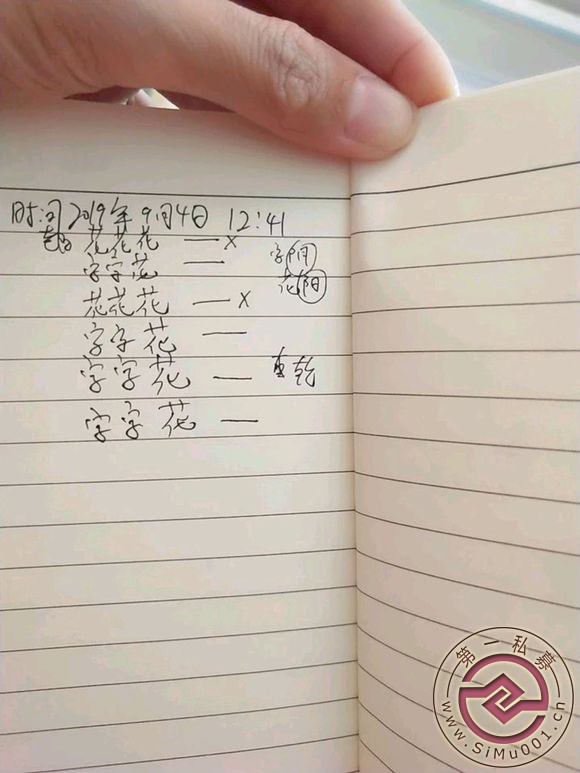 时间 2019年9月4日 12:41
花花花 — x
字字花 — 字阴
花花花 — x 花阳
字字花 —
字字花 — 乾
字字花 —
第一私募
www.SiMu001.cn